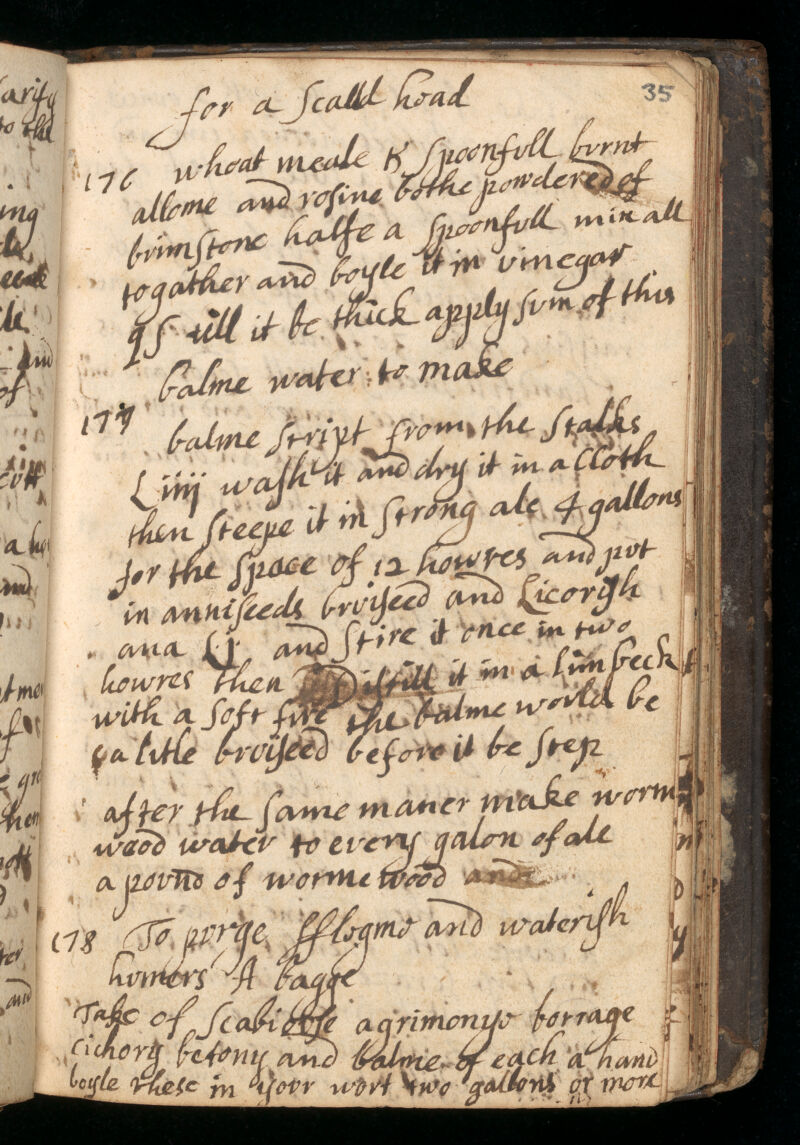 35
for a Scalld head
176 wheat meale ℔ Spoonfull burnt
allome and rosine bothe powdered of
brimstone halfe a spoonfull mix all
togather and boyle it in vinegar
qS till it be thick apply sum of this
balme water to make
177 balme stript from the stalks
Liiij wash it and dry it in a Cloth
then steepe it in strong ale 4 gallons
for the space of 12 howres and put
in anniseeds bruiseed and Licorish
ana Lj and Stire it once in two
howres then Distill it in a limbeck
with a soft fire the balme would be
a litle bruiseed before it be step
after the same maner make worm
wood water to every galon of ale
a pound of wormewood and
178 To purge fflegme and waterish
humers A bagge
Take of Scabiose agrimonye borrage
cichory betony and balme of each a hand
boyle these in your wort two gallons or more